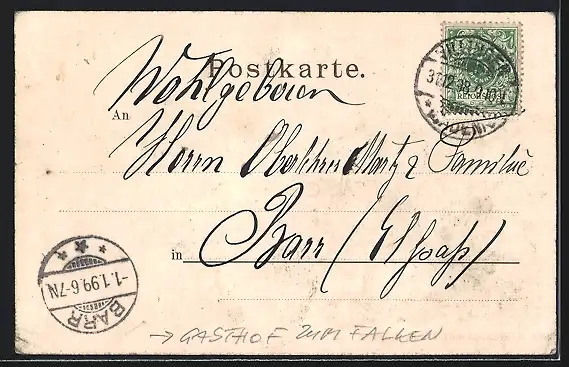 Postkarte.
Wohlgeboren
An
Herrn Oberlehrer Martz & Familie
in Barr (Elsass)
BARR
-1.1.99.6-7N
→ GASTHOF ZUM FALKEN